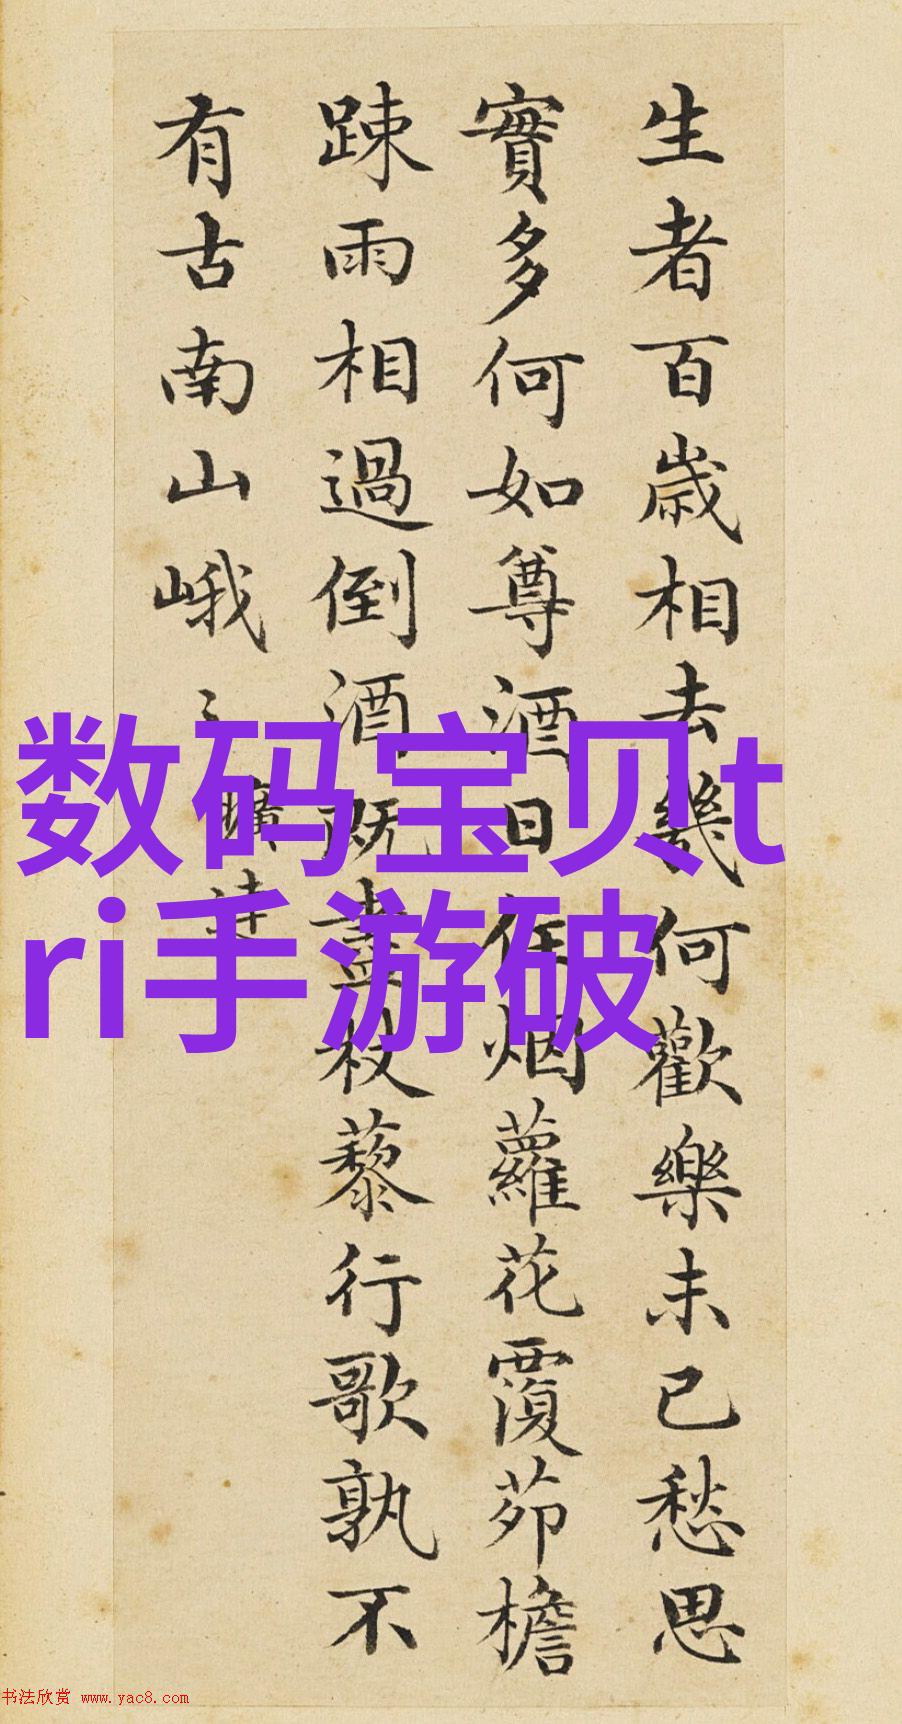 生者百歳相去幾何歡樂未已愁思
實多何如尊酒日往烟蘿花覆茆檐
踈雨相過倒酒既盡杖藜行歌孰不
有古南山峨〻曠達
数码宝贝t
ri手游破
书法欣赏 www.yac8.com